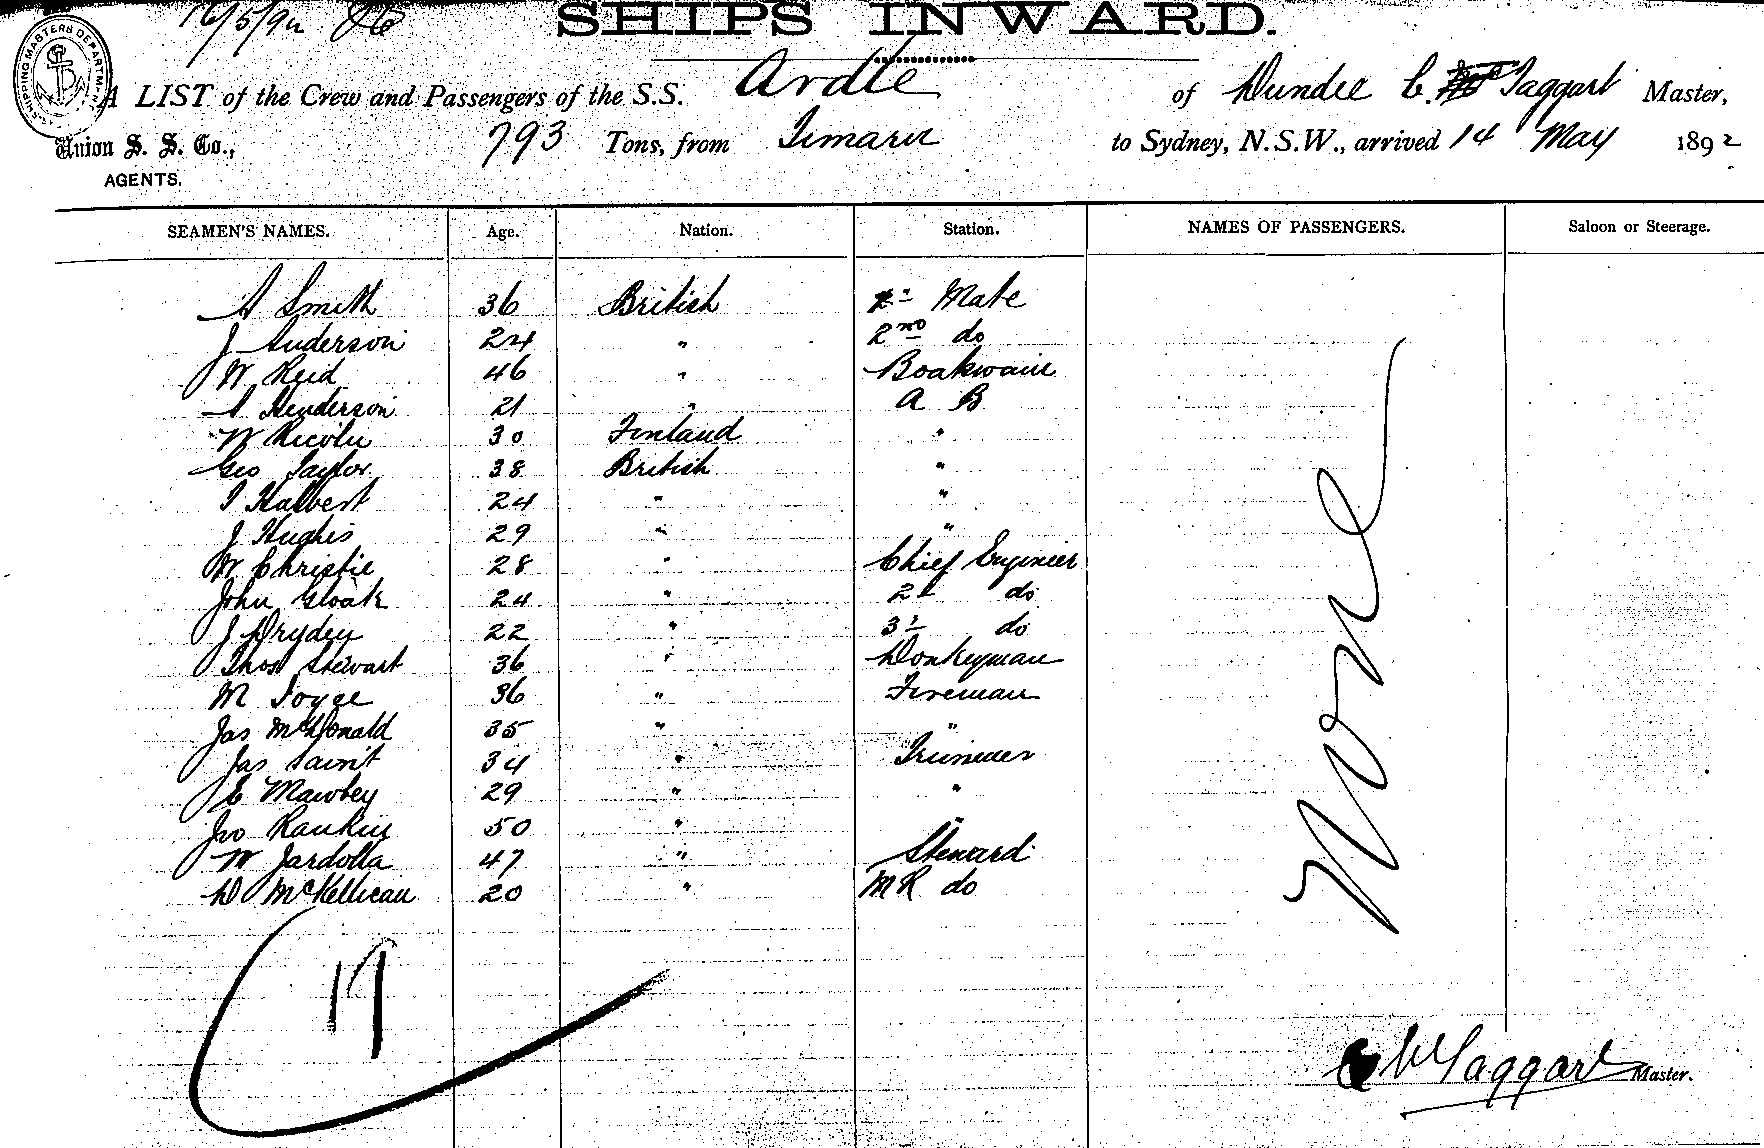 16/5/92
SHIPS INWARD.
SHIPPING MASTERS DEPARTMENT
A LIST of the Crew and Passengers of the S.S. Ardle of Dundee C. Taggart Master,
Union S. S. Co., 793 Tons, from Timaru to Sydney, N.S.W., arrived 14 May 1892
AGENTS.
SEAMEN'S NAMES. Age. Nation. Station. NAMES OF PASSENGERS. Saloon or Steerage.
A Smith 36 British Mate
J Anderson 24 " 2nd do
W Reid 46 " Boatswain
A Henderson 21 " A B
W 30 Finland "
Geo Taylor 38 British "
Halbert 24 " "
J Hughes 29 " "
W Christie 28 " Chief Engineer
John Gloak 24 " 2d do
J Dryden 22 " 3d do
Thos Stewart 36 " Donkeyman
M Joyce 36 " Fireman
Jas McDonald 35 " "
Jas Saint 34 " Trimmer
E Mawbey 29 " "
Jno Rankin 50 " "
W Jardolla 47 " Steward
D McKellican 20 " M R do
None
19
C McTaggart Master.